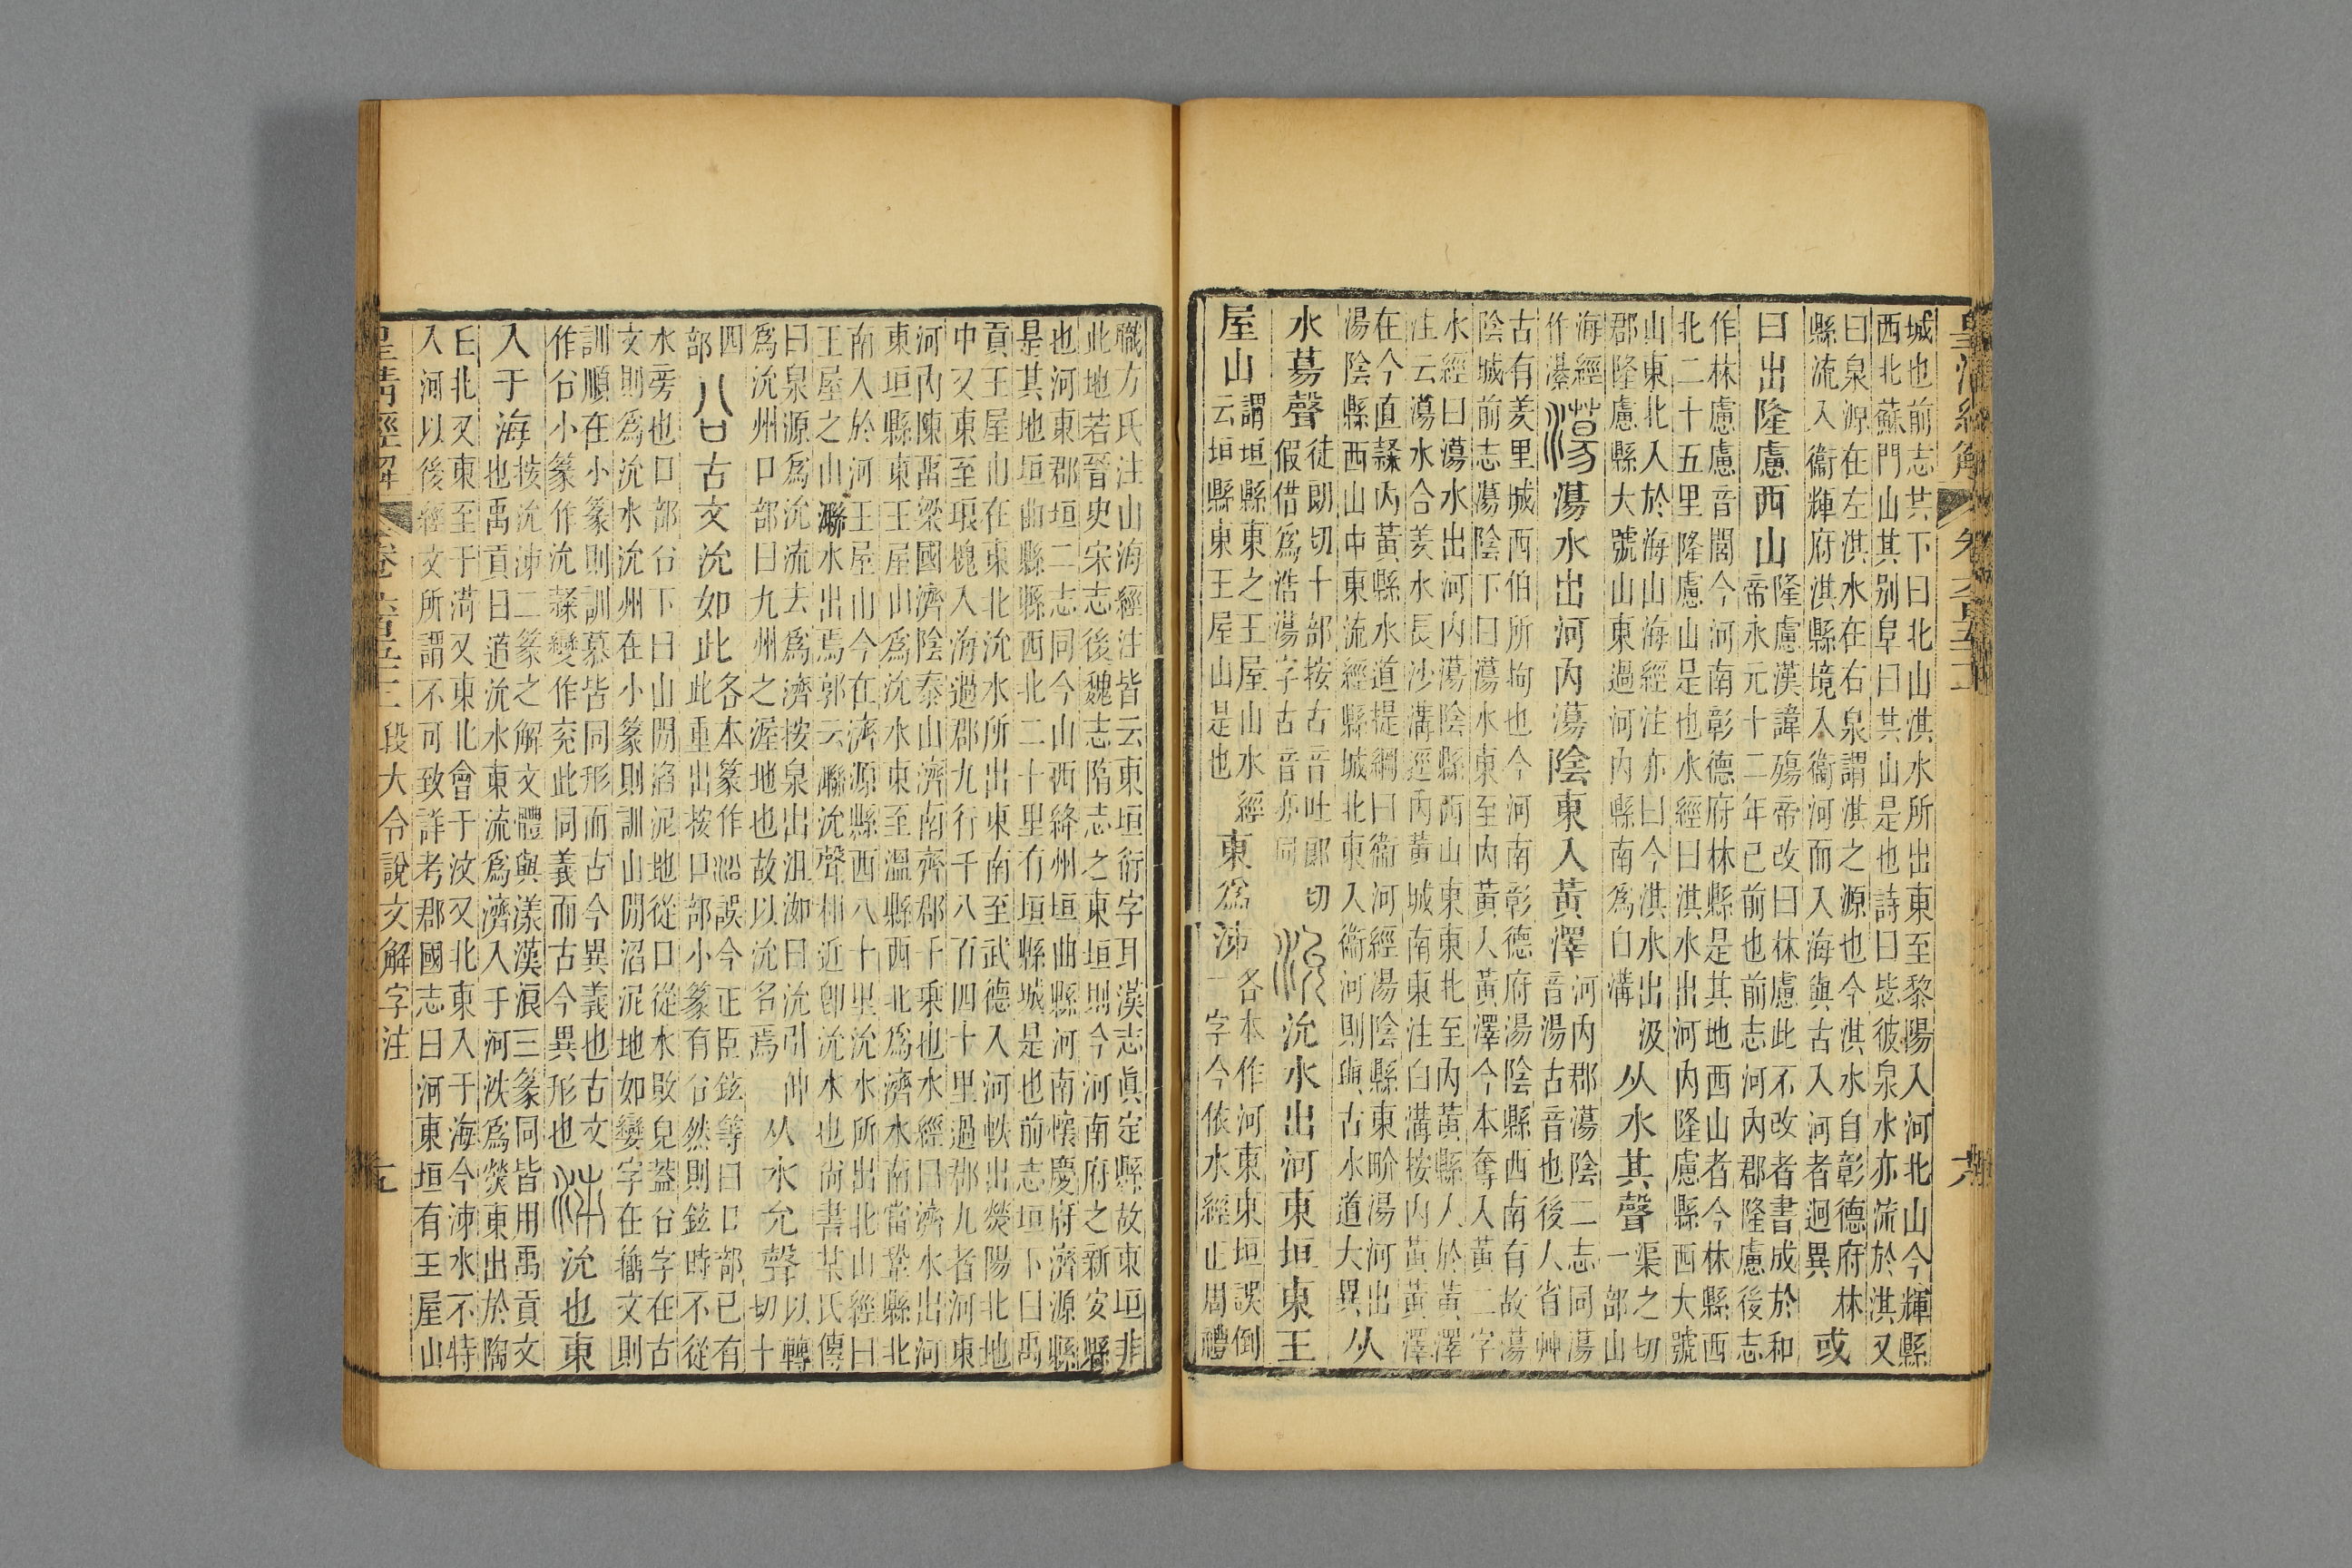 皇清經解
城也前志其下曰北山淇水所出東至黎陽入河北山今輝縣
西北蘇門山其别阜曰共山是也詩曰毖彼泉水亦流於淇又
曰泉源在左淇水在右泉謂淇之源也今淇水自彰德府林
縣流入衞輝府淇縣境入衞河而入海與古入河者迥異
或
曰出隆慮西山
隆慮漢諱殤帝改曰林慮此不改者書成於和
帝永元十二年已前也前志河內郡隆慮後志
作林慮慮音閭今河南彰德府林縣是其地西山者今林縣西
北二十五里隆慮山是也水經曰淇水出河内隆慮縣西大號
山東北入於海山海經注亦曰今淇水出汲
郡隆慮縣大號山東過河内縣南爲白溝
从水其聲
渠之切
一部山
海經
作濝
蕩蕩水出河内蕩陰東入黃澤
河内郡蕩陰二志同蕩
音湯古音也後人省艸
古有羑里城西伯所拘也今河南彰德府湯陰縣西南有故蕩
陰城前志蕩陰下曰蕩水東至内黃入黃澤今本奪入黃二字
水經曰蕩水出河内蕩陰縣西山東東北至内黃縣入於黃澤
注云蕩水合羑水長沙溝逕内黃城南東注白溝按内黃黃澤
在今直隸内黃縣水道提綱曰衞河經湯陰縣東畍湯河出
湯陰縣西山中東流經縣城北東入衞河則與古水道大異
从
水募聲
徒朗切十部按古音吐郎切
假借爲浩蕩字古音亦同
沇沇水出河東垣東王
屋山
謂垣縣東之王屋山水經
云垣縣東王屋山是也
東爲泲
各本作河東東垣誤倒
一字今依水經正周禮
職方氏注山海經注皆云東垣衍字耳漢志眞定縣故東垣非
此地若晉史宋志後魏志隋志之東垣則今河南府之新安縣
也河東郡垣二志同今山西絳州垣曲縣河南懷慶府濟源縣
是其地垣曲縣西北二十里有垣縣城是也前志垣下曰禹
貢王屋山在東北沇水所出東南至武德入河軼出滎陽北地
中又東至琅槐入海過郡九行千八百四十里過郡九者河東
河内陳畱梁國濟陰泰山濟南齊郡千乘也水經曰濟水出河
東垣縣東王屋山爲沇水東至溫縣西北爲濟水南當鞏縣北
南入於河王屋山今在濟源縣西八十里沇水所出北山經曰
王屋之山㶌水出焉郭云㶌沇聲相近卽沇水也尚書某氏傳
曰泉源爲沇流去爲濟按泉出沮洳曰沇引伸
爲沇州口部曰九州之渥地也故以沇名焉
从水允聲
以轉切十
四
部
㕣古文沇如此
各本篆作㳂誤今正臣鉉等曰口部已有
此重出按口部小篆有㕣然則鉉時不從
水旁也口部㕣下曰山閒淊泥地從口從水敗皃蓋㕣字在古
文則爲沇水沇州在小篆則訓山閒淊泥地如孌字在籒文則
訓順在小篆則訓慕皆同形而古今異義也古文
作㕣小篆作沇隸變作兖此同義而古今異形也
泲沇也東
入于海
按沇泲二篆之解文體與漾漢浪三篆同皆用禹貢文
也禹貢曰道沇水東流爲濟入于河泆爲滎東出於陶
𠀌北又東至于菏又東北會于汶又北東入于海今泲水不特
入河以後經文所謂不可致詳考郡國志曰河東垣有王屋山
皇清經解
卷六百五十二 段大令說文解字注